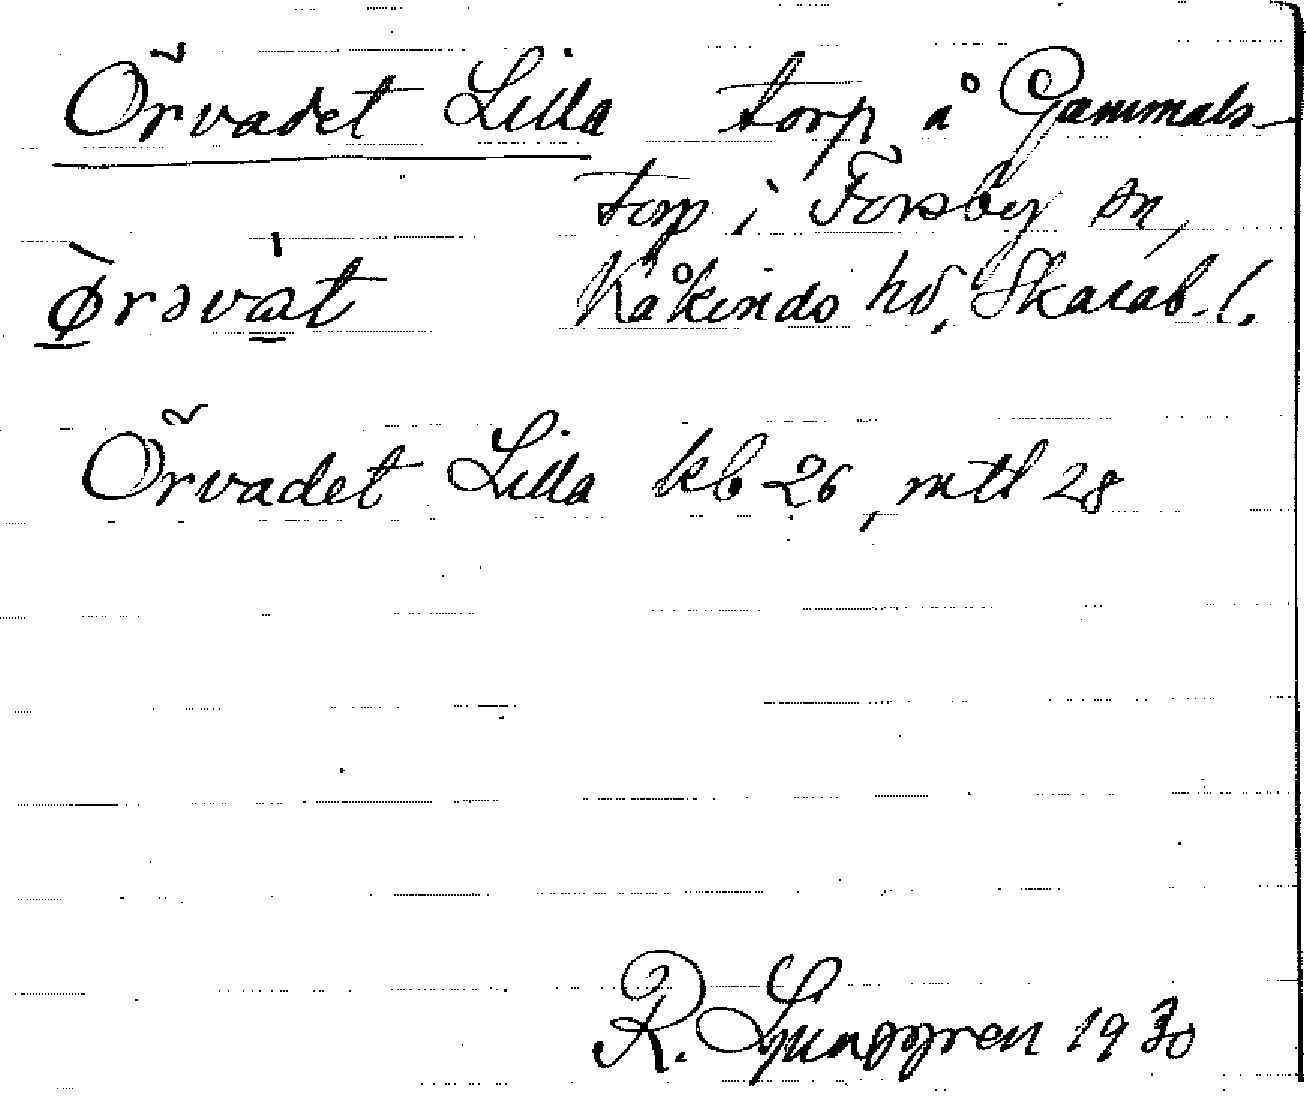 Örvadet Lilla torp å Gammals-
torp i Forsby sn,
ørəvat Kåkinds hd, Skarab. l.
Örvadet Lilla kb 26, mtl 28
R. Ljunggren 1930